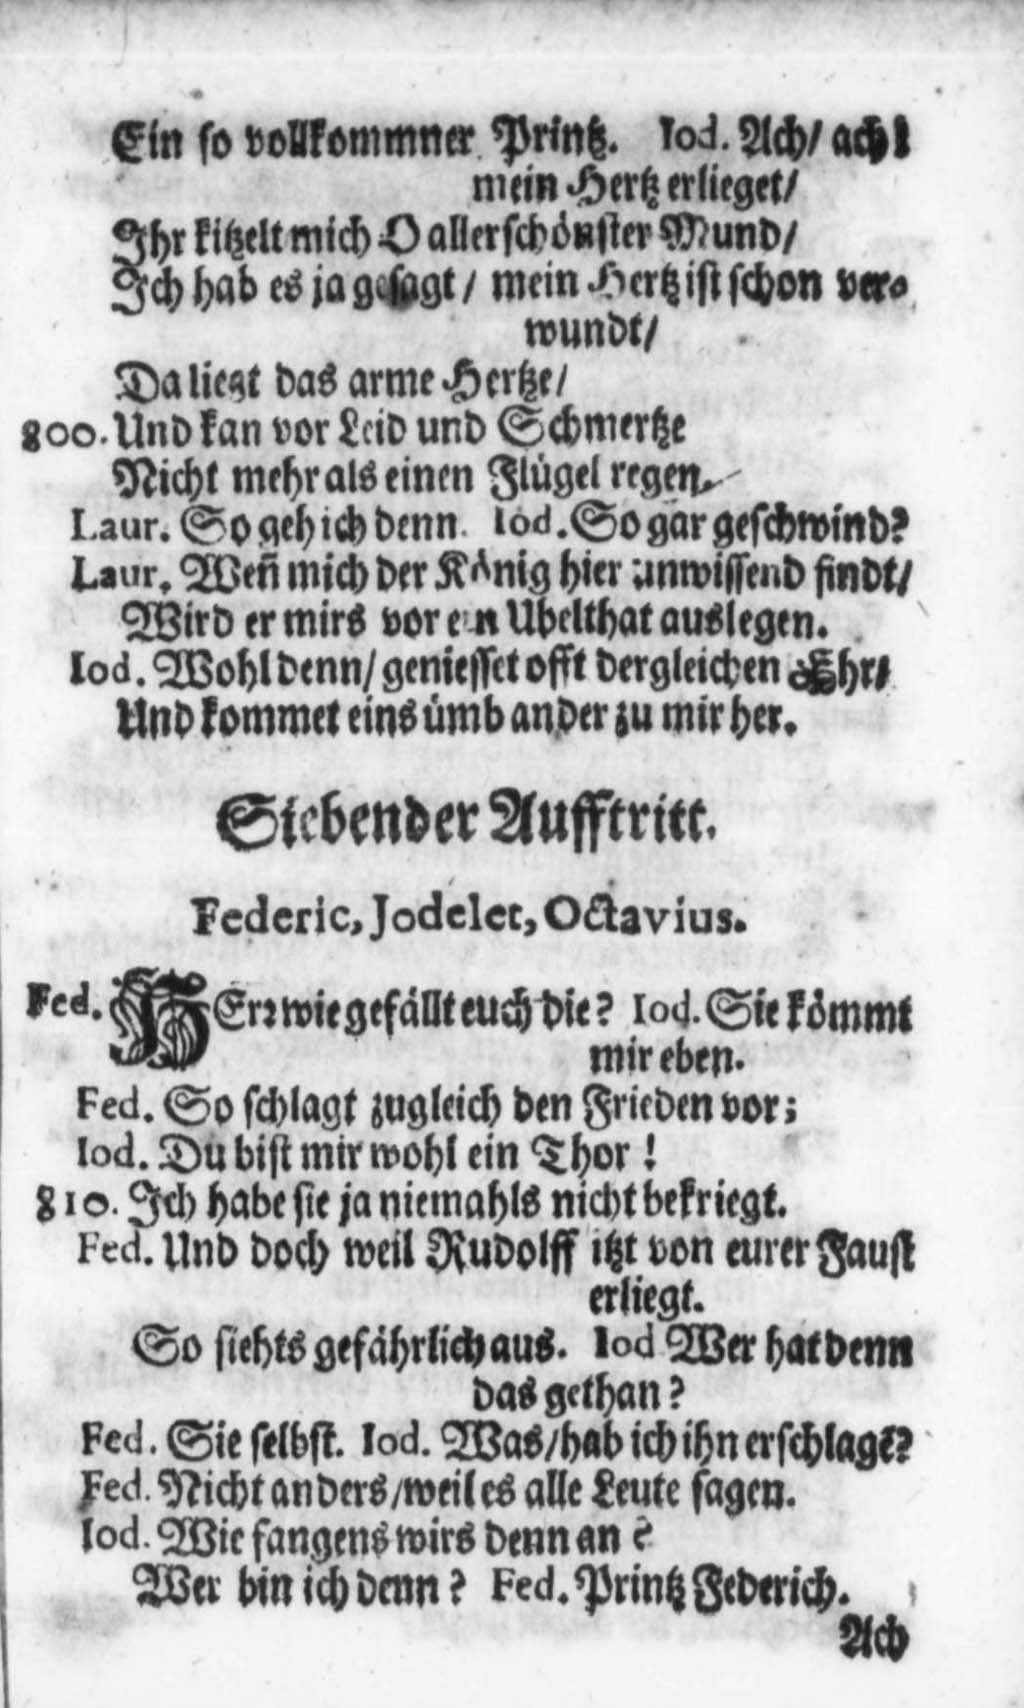 Ein so vollkommner Printz. Iod. Ach/ ach!
mein Hertz erlieget/
Ihr kitzelt mich O allerschönster Mund/
Ich hab es ja gesagt/ mein Hertz ist schon ver-
wundt/
Da liegt das arme Hertze/
800. Und kan vor Leid und Schmertze
Nicht mehr als einen Flügel regen.
Laur. So geh ich denn. Iod. So gar geschwind?
Laur. Weñ mich der König hier unwissend findt/
Wird er mirs vor ein Ubelthat auslegen.
Iod. Wohl denn/ geniesset offt dergleichen Ehr/
Und kommet eins ümb ander zu mir her.
Siebender Aufftritt.
Federic, Jodelet, Octavius.
Fed. HErr wie gefällt euch die? Iod. Sie kömmt
mir eben.
Fed. So schlagt zugleich den Frieden vor;
Iod. Du bist mir wohl ein Thor!
810. Ich habe sie ja niemahls nicht bekriegt.
Fed. Und doch weil Rudolff itzt von eurer Faust
erliegt.
So siehts gefährlich aus. Iod Wer hat denn
das gethan?
Fed. Sie selbst. Iod. Was/ hab ich ihn erschlagē?
Fed. Nicht anders/ weil es alle Leute sagen.
Iod. Wie fangens wirs denn an?
Wer bin ich denn? Fed. Printz Federich.
Ach